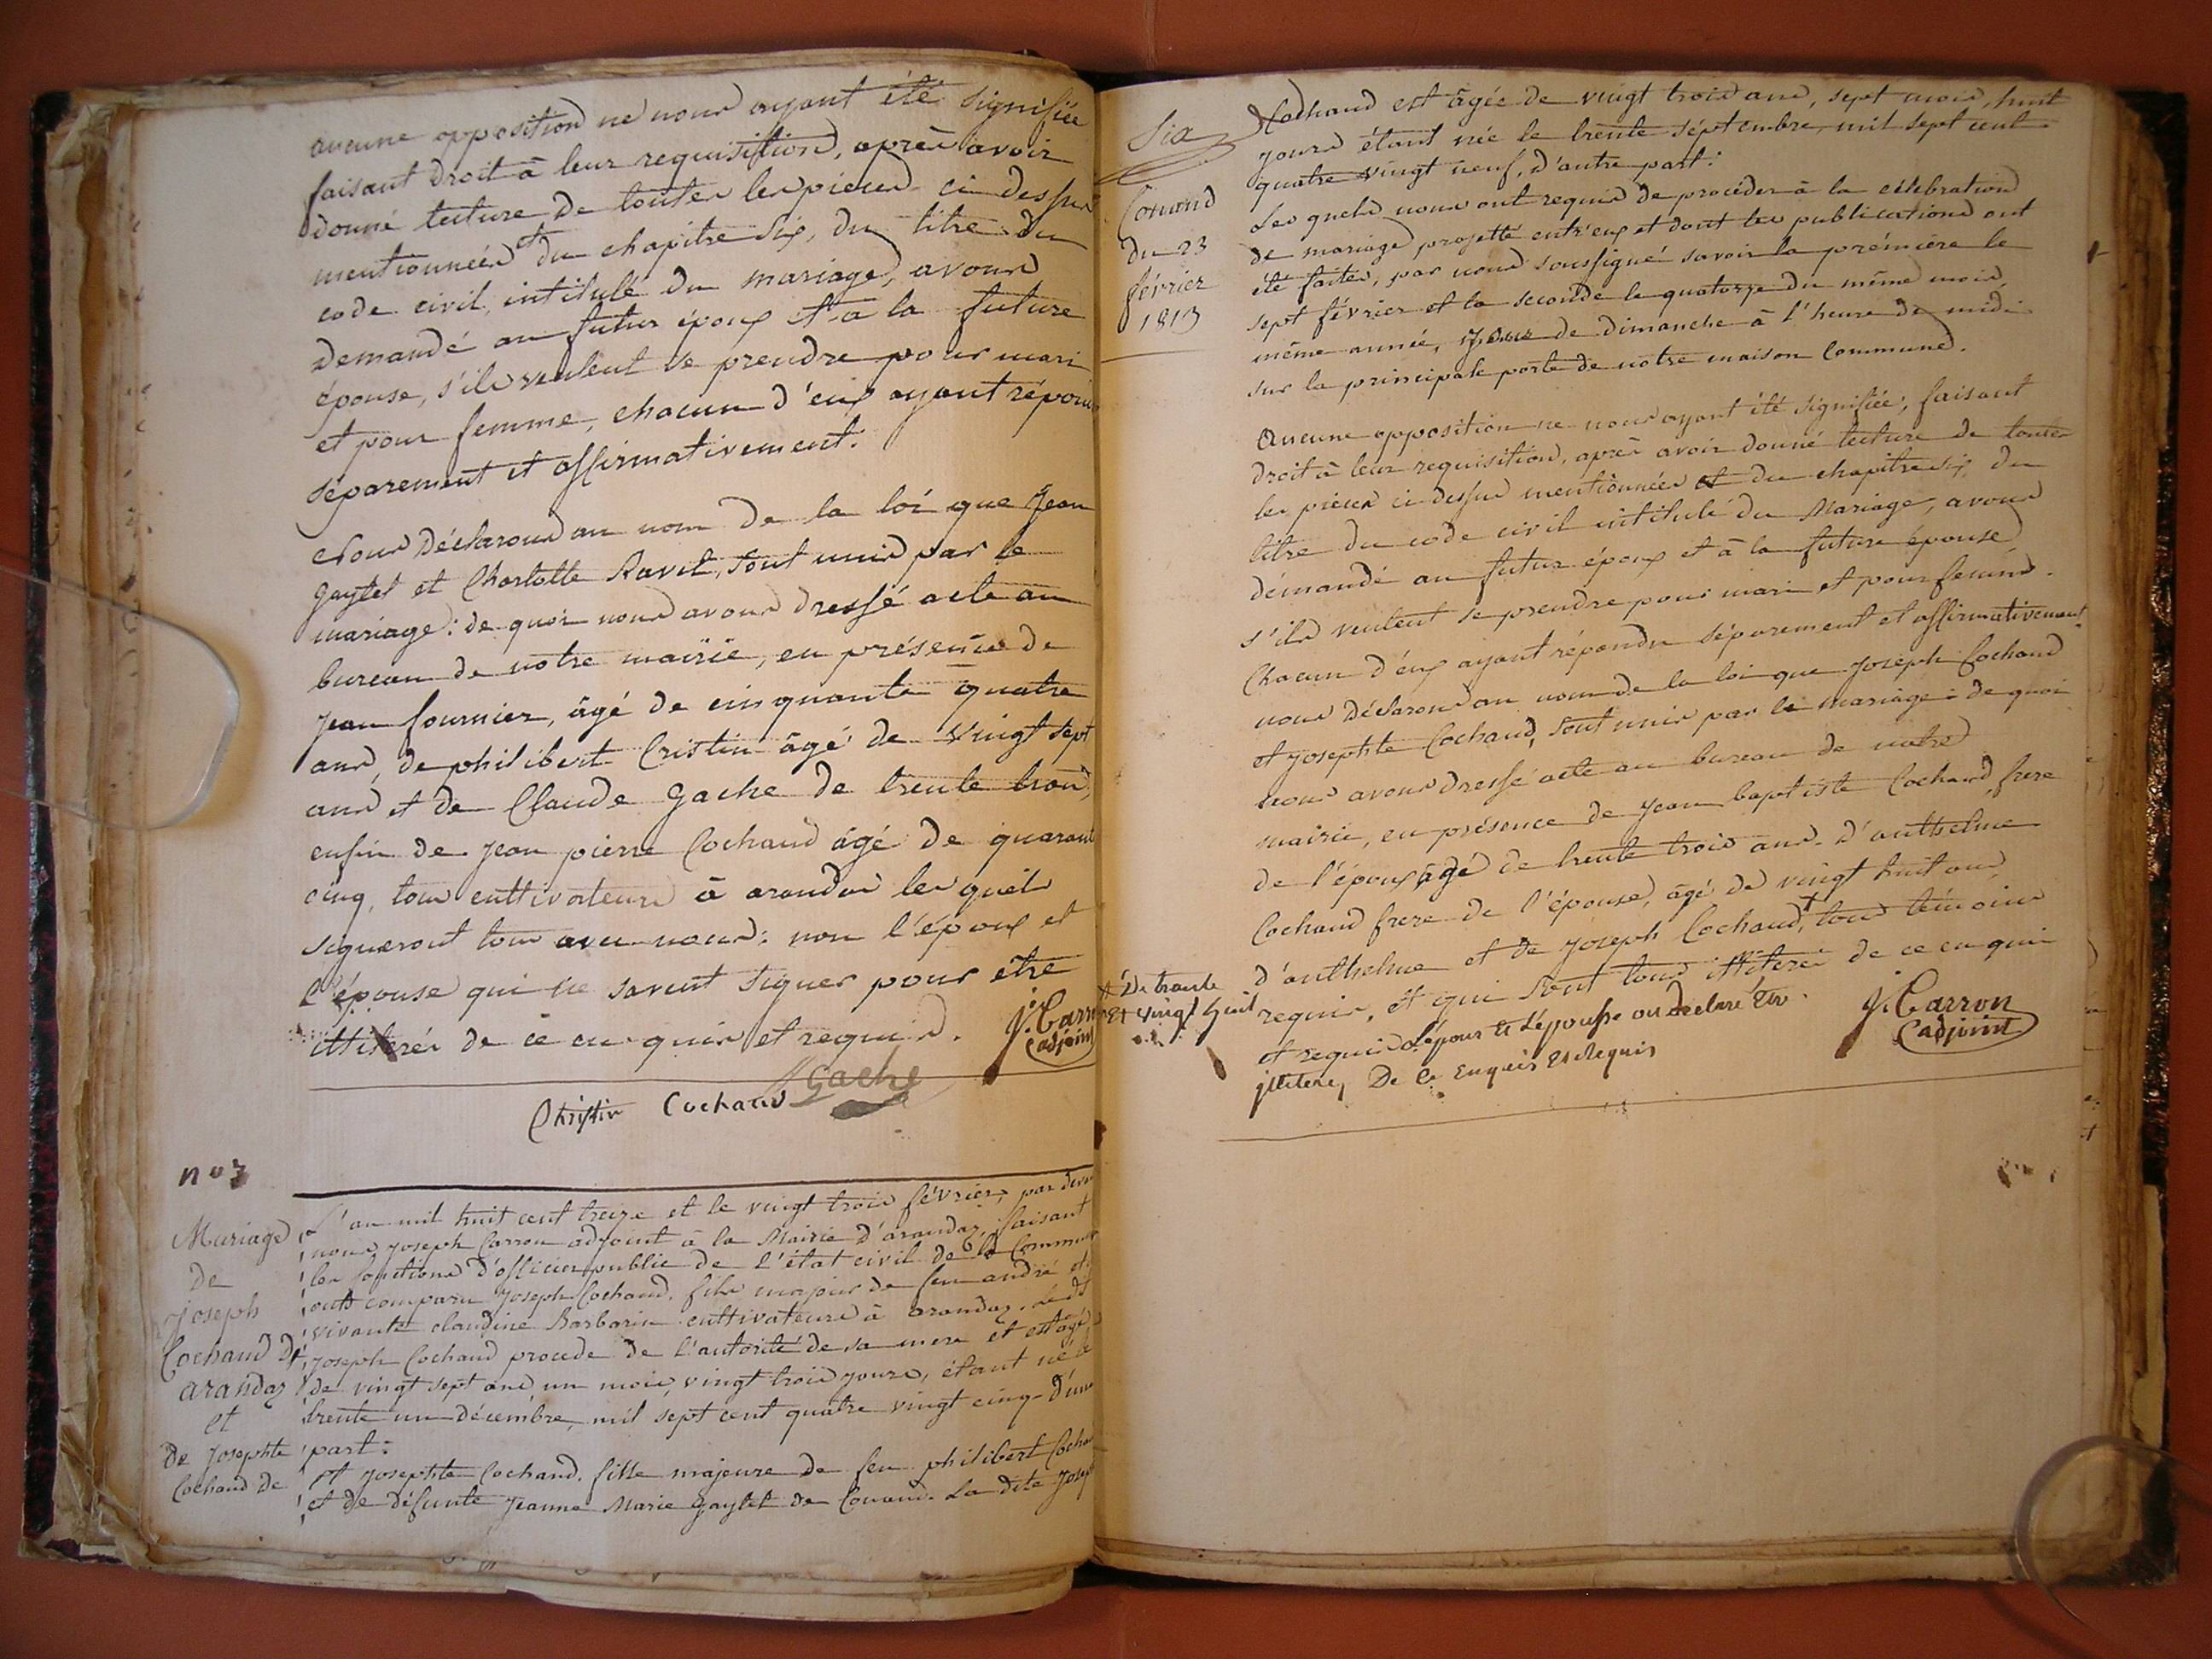 aucune opposition ne nous ayant été signifiée
faisant droit à leur requisition, après avoir
donné lecture de toutes les pieces ci dessus
mentionnées et du chapitre six, du titre du
code civil, intitulé du mariage, avons
demandé au futur époux et à la future
épouse, s'ils veulent se prendre pour mari
et pour femme, chacun d'eux ayant répondu
séparement et affirmativement.
Nous déclarons au nom de la loi que Jean
Gaytet et Charlotte Ravit, sont unis par le
mariage: de quoi nous avons dressé acte au
bureau de notre mairie, en présence de
Jean fournier, âgé de cinquante quatre
ans, de philibert Cristin âgé de vingt sept
ans et de Claude Gache de trente trois,
enfin de Jean pierre Cochand âgé de quarante
cinq, tous cultivateurs à arandas les quels
signeront tous avec nous: non l'époux et
l'épouse qui ne savent signer pour être
illiterés de ce enquis et requis.
J. Carron
adjoint
Christin Cochand Gache
n° 7
Mariage
de
Joseph
Cochand d'
arandas
et
de Josephte
Cochand de
L'an mil huit cent treize et le vingt trois février, par devant
nous Joseph Carron adjoint à la Mairie d'arandas, faisant
les fonctions d'officier public de l'état civil de la Commune
ont comparu Joseph Cochand, fils majeur de feu andré et
vivante claudine Barbarin cultivateurs à arandas. Le dt
Joseph Cochand procede de l'autorité de sa mere et est âgé
de vingt sept ans un mois, vingt trois jours, étant né le
trente un décembre, mil sept cent quatre vingt cinq d'une
part:
et Josephte Cochand, fille majeure de feu philibert Cochand
et de défunte Jeanne Marie Gaytet de Conand. La dite Joseph
Six
Conand
du 23
février
1813
Cochand est âgée de vingt trois ans, sept mois, huit
jours étant née le trente séptembre, mil sept cent
quatre vingt neuf, d'autre part:
Les quels nous ont requis de procéder à la célébration
de mariage projetté entr'eux et dont les publications ont
été faites, par nous soussigné savoir la prémière le
sept février et la seconde le quatorze du même mois,
même année, jour de dimanche à l'heure de midi
sur la principale porte de notre maison Commune.
Aucune opposition ne nous ayant été signifiée, faisant
droit à leur requisition, après avoir donné lecture de toutes
les pieces ci dessus mentionnées et du chapitre six, du
titre du code civil intitulé du Mariage, avons
démandé au futur époux et à la future épouse
s'ils veulent se prendre pour mari et pour femme.
Chacun d'eux ayant répondu séparement et affirmativement
nous déclarons au nom de la loi que Joseph Cochand
et Josephte Cochand, sont unis par le mariage: de quoi
nous avons dressé acte au bureau de notre
mairie, en présence de Jean baptiste Cochand, frere
de l'époux âgé de trente trois ans. d'anthelme
Cochand frere de l'épouse, âgé de vingt huit ans,
d'anthelme et de Joseph Cochand, + tous témoins
requis, et qui sont tous illiterés de ce enquis
et requis. L'époux et L'épouse on declaré être
jlliteré, De Ce Enquis Et Requis
+ De trente
Et vingt huit
J. Carron
adjoint